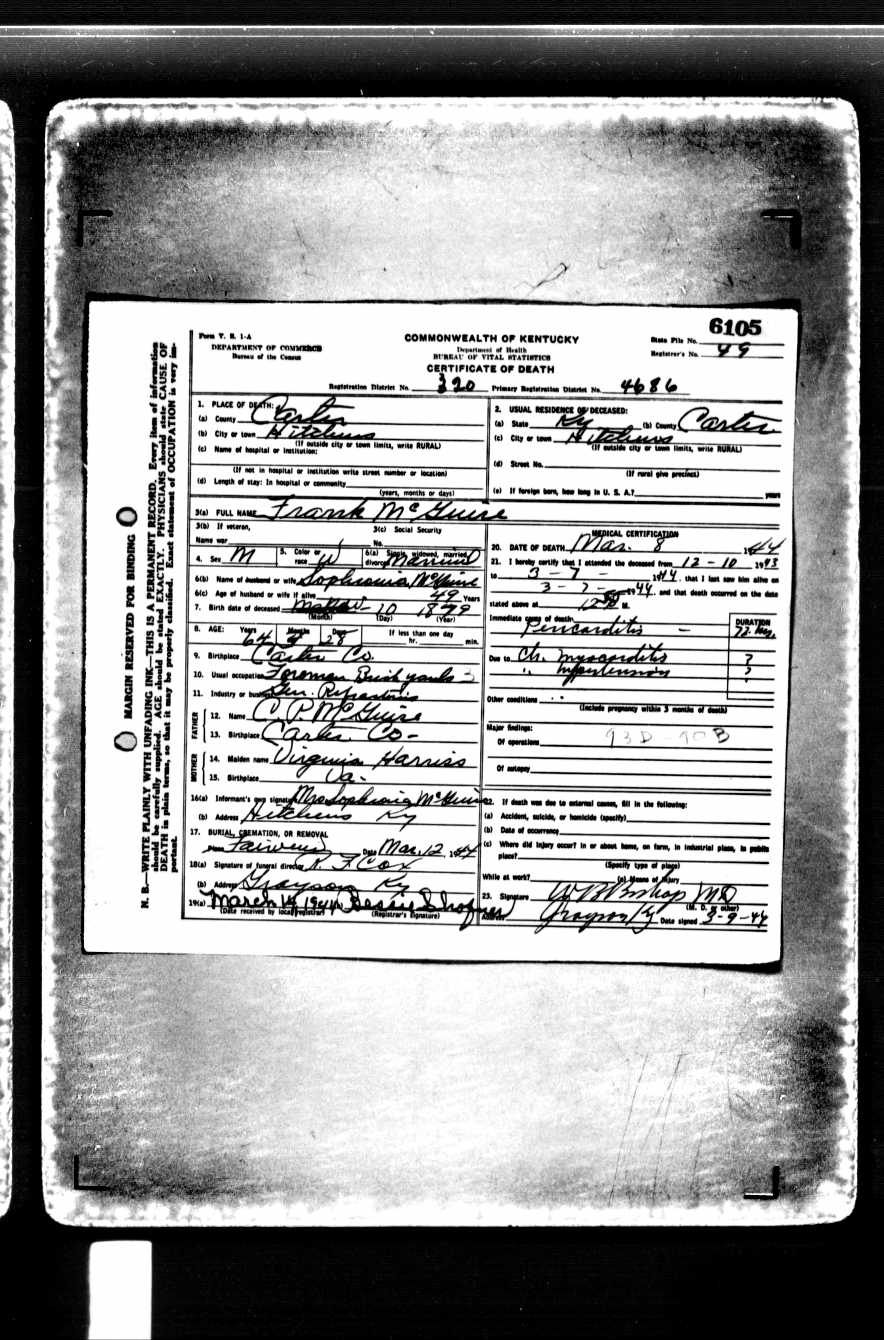 6105
Form V. S. 1-A
COMMONWEALTH OF KENTUCKY
State File No.
DEPARTMENT OF COMMERCE
Department of Health
Registrar's No. 49
Bureau of the Census
BUREAU OF VITAL STATISTICS
CERTIFICATE OF DEATH
Registration District No. 320 Primary Registration District No. 4686
1. PLACE OF DEATH:
(a) County Carter
(b) City or town Hitchens
(If outside city or town limits, write RURAL)
(c) Name of hospital or institution:
(If not in hospital or institution write street number or location)
(d) Length of stay: In hospital or community
(years, months or days)
2. USUAL RESIDENCE OF DECEASED:
(a) State Ky (b) County Carter
(c) City or town Hitchens
(If outside city or town limits, write RURAL)
(d) Street No.
(If rural give precinct)
(e) If foreign born, how long in U. S. A.? years
3(a) FULL NAME Frank McGuire
3(b) If veteran, 3(c) Social Security
Name war No.
4. Sex M 5. Color or race W 6(a) Single, widowed, married, divorced Married
6(b) Name of husband or wife Sophronia McGuire
6(c) Age of husband or wife if alive 49 Years
7. Birth date of deceased 10 1879
(Month) (Day) (Year)
8. AGE: Years Months Days If less than one day
64 28 hr. min.
9. Birthplace Carter Co.
10. Usual occupation Foreman Brick yards
11. Industry or business Gen. Refractories
FATHER
12. Name C. P. McGuire
13. Birthplace Carter Co-
MOTHER
14. Maiden name Virginia Harriss
15. Birthplace Va-
16(a) Informant's own signature Mrs Sophronia McGuire
(b) Address Hitchens Ky
17. BURIAL, CREMATION, OR REMOVAL
Place Date Mar. 12, 1944
18(a) Signature of funeral director R. F. Cox
(b) Address Grayson Ky
19(a) March 14, 1944 Bessie
(Date received by local registrar) (Registrar's Signature)
MEDICAL CERTIFICATION
20. DATE OF DEATH Mar. 8 1944
21. I hereby certify that I attended the deceased from 12-10 1943
to 3-7- 1944, that I last saw him alive on
3-7- 1944, and that death occurred on the date
stated above at M.
Immediate cause of death DURATION
Pericarditis - 72 hrs.
Due to Ch. myocarditis ?
" hypertension ?
Other conditions
(Include pregnancy within 3 months of death)
Major findings:
Of operations 93D-90B
Of autopsy
22. If death was due to external causes, fill in the following:
(a) Accident, suicide, or homicide (specify)
(b) Date of occurrence
(c) Where did injury occur? In or about home, on farm, in industrial place, in public
place?
(Specify type of place)
While at work? (e) Means of injury
23. Signature W B Bishop MD
(M. D. or other)
Address Grayson Ky Date signed 3-9-44
MARGIN RESERVED FOR BINDING
N. B.—WRITE PLAINLY WITH UNFADING INK—THIS IS A PERMANENT RECORD. Every item of information
should be carefully supplied. AGE should be stated EXACTLY. PHYSICIANS should state CAUSE OF
DEATH in plain terms, so that it may be properly classified. Exact statement of OCCUPATION is very im-
portant.